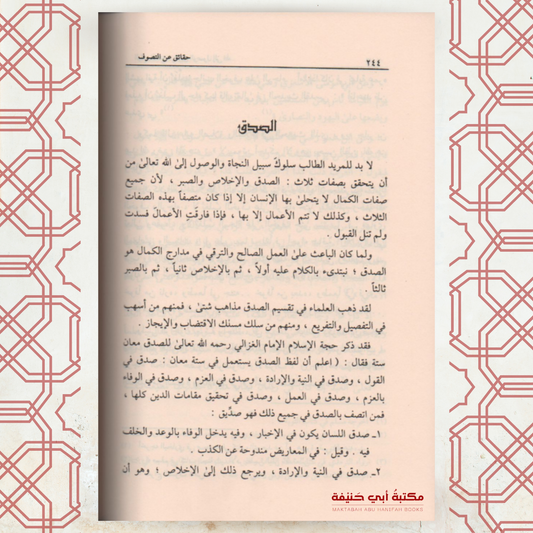 ٢٤٤ حقائق عن التصوف
الصدق
لا بد للمريد الطالب سلوكَ سبيل النجاة والوصول إلىٰ الله تعالىٰ من
أن يتحقق بصفات ثلاث : الصدق والإخلاص والصبر ، لأن جميع
صفات الكمال لا يتحلىٰ بها الإنسان إلا إذا كان متصفاً بهذه الصفات
الثلاث ، وكذلك لا تتم الأعمال إلا بها ، فإذا فارقتِ الأعمالَ فسدت
ولم تنل القبول .
ولما كان الباعث علىٰ العمل الصالح والترقي في مدارج الكمال هو
الصدق ؛ نبتدىء بالكلام عليه أولاً ، ثم بالإخلاص ثانياً ، ثم بالصبر
ثالثاً .
لقد ذهب العلماء في تقسيم الصدق مذاهب شتىٰ ، فمنهم من أسهب
في التفصيل والتفريع ، ومنهم من سلك مسلك الاقتضاب والإيجاز .
فقد ذكر حجة الإسلام الإمام الغزالي رحمه الله تعالىٰ للصدق معان
ستة فقال : ( اعلم أن لفظ الصدق يستعمل في ستة معان : صدق في
القول ، وصدق في النية والإرادة ، وصدق في العزم ، وصدق في الوفاء
بالعزم ، وصدق في العمل ، وصدق في تحقيق مقامات الدين كلها ،
فمن اتصف بالصدق في جميع ذلك فهو صدِّيق :
١ـ صدق اللسان يكون في الإخبار ، وفيه يدخل الوفاء بالوعد والخلف
فيه . وقيل : في المعاريض مندوحة عن الكذب .
٢ـ صدق في النية والإرادة ، ويرجع ذلك إلىٰ الإخلاص ؛ وهو أن
مكتبة أبي حنيفة
MAKTABAH ABU HANIFAH BOOKS